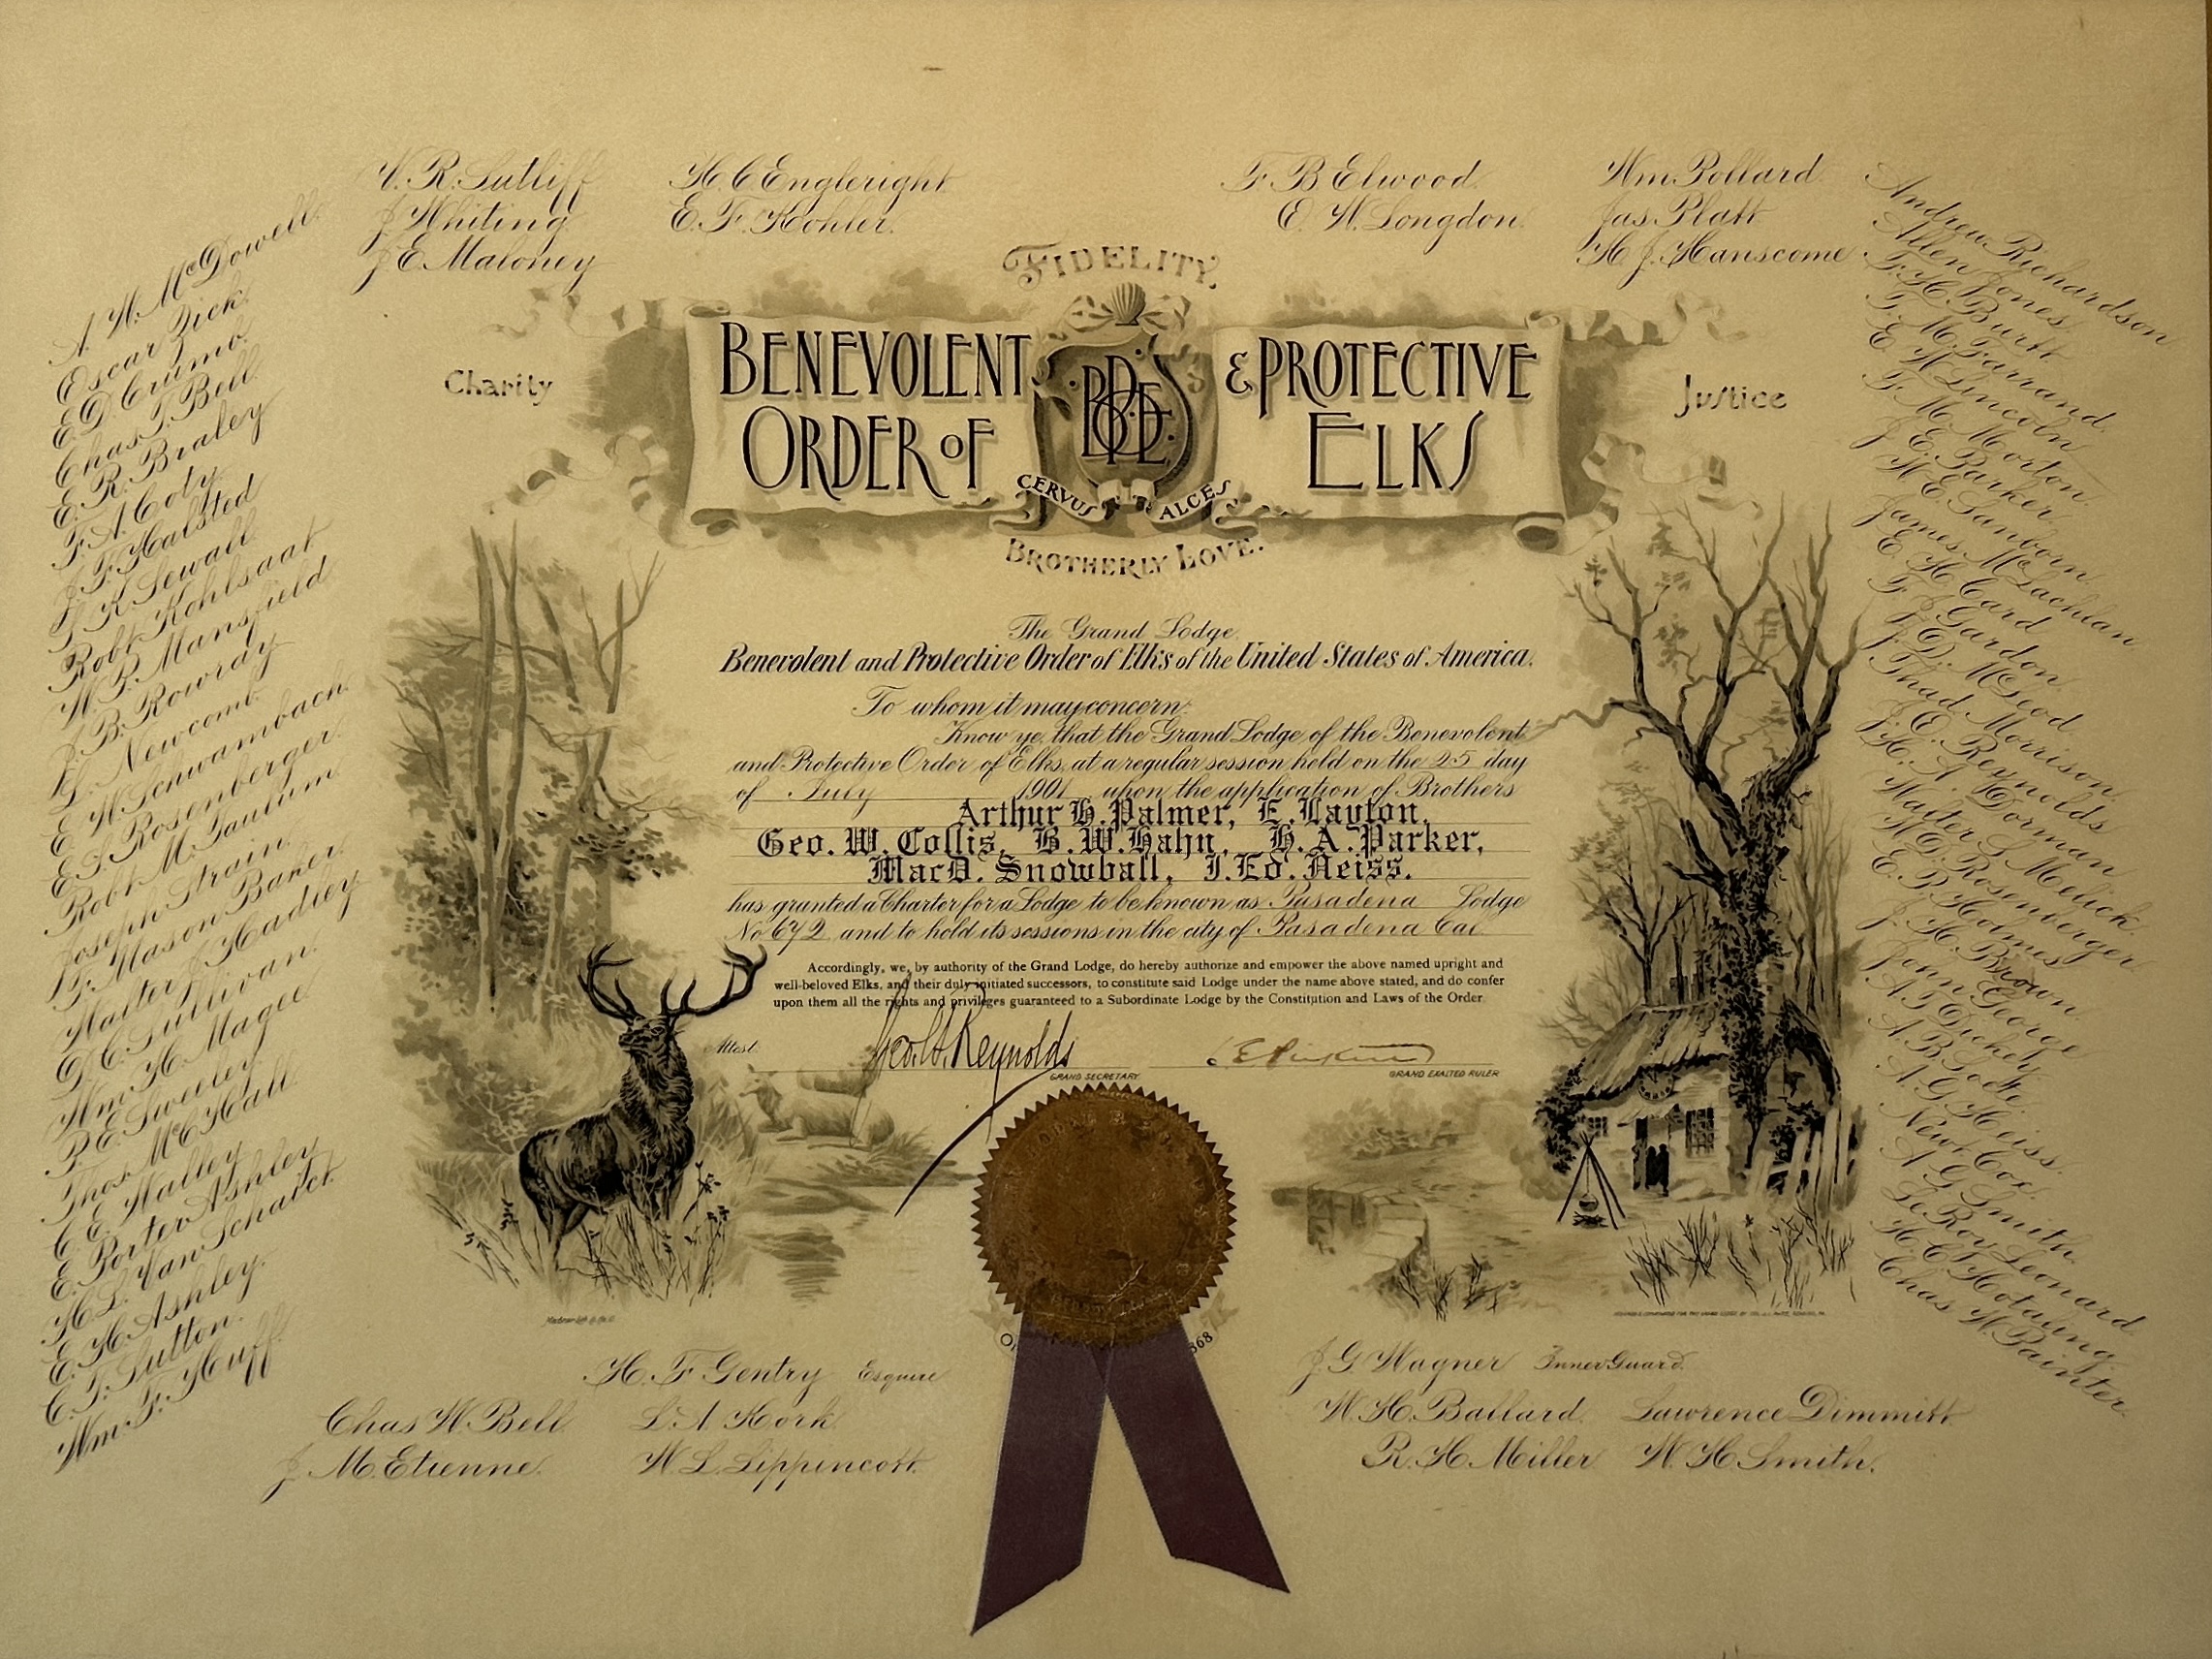 V. R. Sutliff
J Whiting
J E Maloney
H C Engleright
E. F. Kohler.
F. B Elwood.
E. W. Longdon.
Wm Pollard
Jas Platt
H J. Hanscome
A. W. McDowell.
Oscar Zick.
E D Crumb.
Chas. T. Bell.
E. R. Braley
F. A. Coty
J. F. Halsted
S. K. Sewall.
Robt. Kohlsaat
W. B. Mansfield
J. B. Rowray
L. Newcomb.
E. W. Schwambach.
E. S. Rosenberger.
Robt M. Gaulum.
Joseph Strain.
F. Mason Baker.
Walter J. Hadley
D. C. Sullivan.
Wm. H. Magee
P. E. Sweeley
Thos. McC Hall.
C. E. Walley
E. Porter Ashley
H. L. Van Schaick.
E. H. Ashley.
C. T. Sutton.
Wm. F. Huff.
FIDELITY
Charity
BENEVOLENT & PROTECTIVE
ORDER OF ELKS
BPOE
CERVUS ALCES
Justice
BROTHERLY LOVE.
The Grand Lodge
Benevolent and Protective Order of Elks of the United States of America.
To whom it may concern:
Know ye, that the Grand Lodge of the Benevolent
and Protective Order of Elks, at a regular session held on the 25 day
of July 1901 upon the application of Brothers
Arthur H. Palmer, E. Layton,
Geo. W. Collis, B. W. Hahn, H. A. Parker,
MacD. Snowball, J. Ed. Heiss.
has granted a Charter for a Lodge to be known as Pasadena Lodge
No 672 and to hold its sessions in the city of Pasadena Cal
Accordingly, we, by authority of the Grand Lodge, do hereby authorize and empower the above named upright and
well-beloved Elks, and their duly initiated successors, to constitute said Lodge under the name above stated, and do confer
upon them all the rights and privileges guaranteed to a Subordinate Lodge by the Constitution and Laws of the Order.
Attest.
Geo. A. Reynolds
GRAND SECRETARY
GRAND EXALTED RULER
Andrew Richardson
Allen Jones
F. H. Burtt
F. M. Farrand.
E W Lincoln
F. M. Morton
J E. Parker.
W. E. Sanborn.
James McLachlan
E H Card
F J Gardon
J. D. McLeod
Thad Morrison.
J. E. Reynolds
H. A. Dorman
Walter S Melick.
W. D. Rosenberger
E. R. Holmes
J. H. Brown
John George
A. T. Dickey
A. B. Lock.
A. G. Heiss.
Newt Cox.
A G Smith.
Le Roy Leonard
H. C. Hotaling
Chas W. Painter.
H. F Gentry Esquire
Chas W. Bell
L. A Kork
J. M. Etienne.
W. L. Lippincott.
J G Wagner Inner Guard.
W. H. Ballard.
Lawrence Dimmitt
R. H. Miller
W. H. Smith.